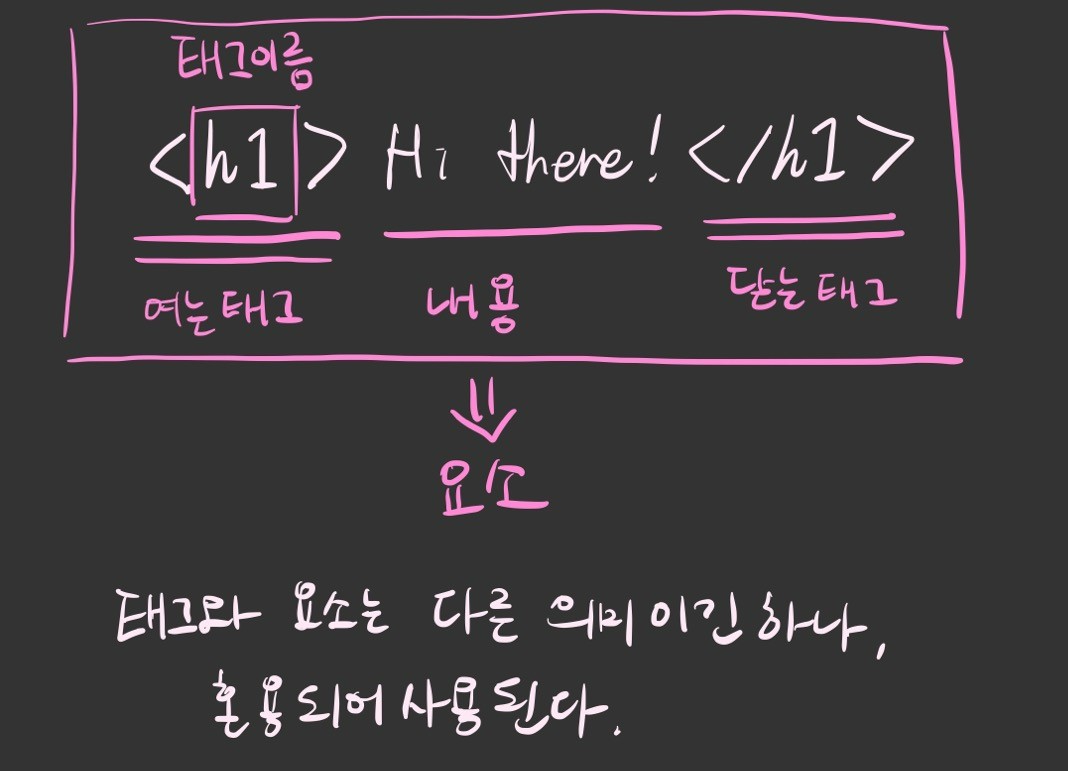 태그이름
<h1> Hi there! </h1>
여는태그 내용 닫는 태그
요소
태그와 요소는 다른 의미이긴하나,
혼용되어 사용된다.